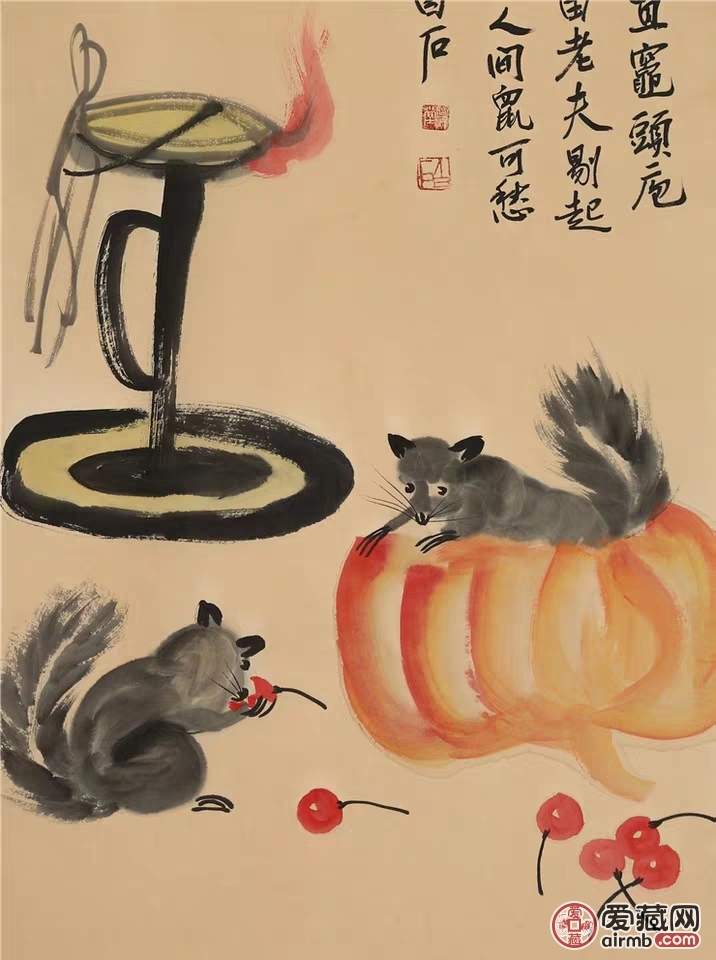 竈頭庖
老夫剔起
人間鼠可愁
白石
爱藏网
airmb.com